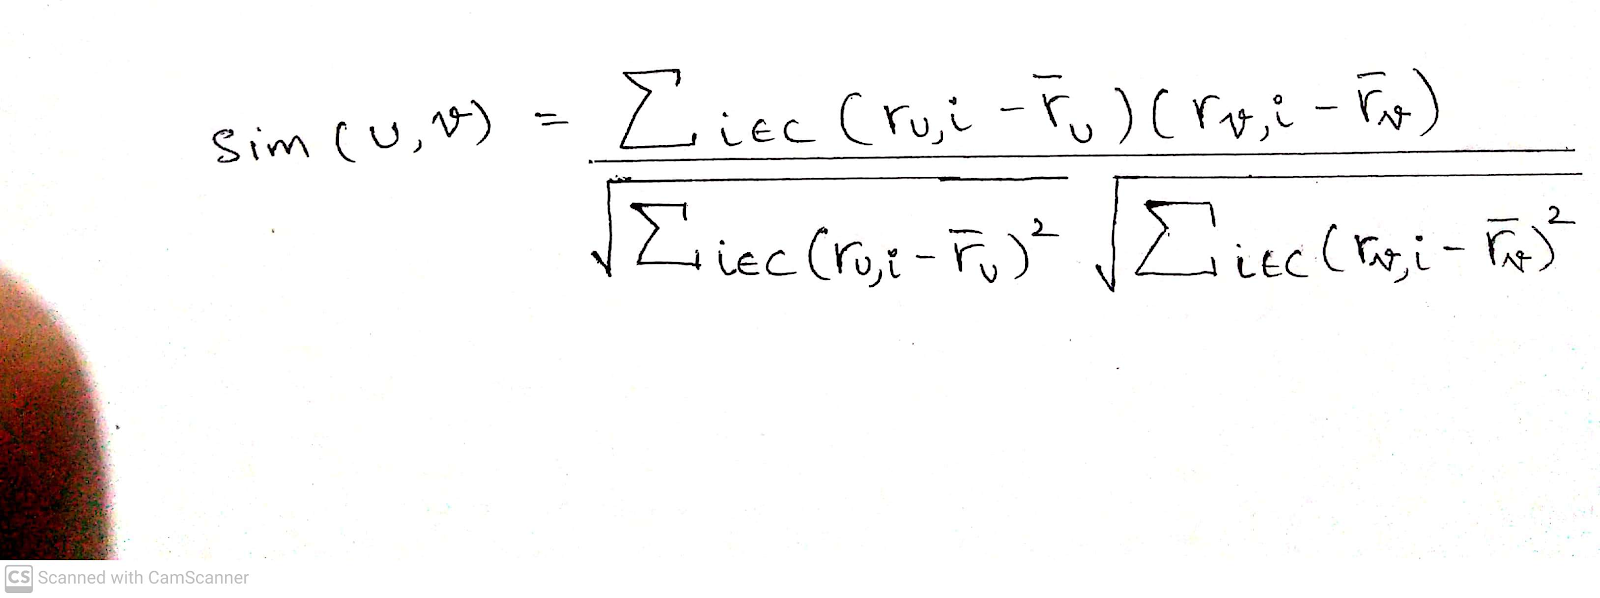 sim (u, v) = ∑ i∈C (r_u,i - r̄_u) (r_v,i - r̄_v)
√∑ i∈C (r_u,i - r̄_u)² √∑ i∈C (r_v,i - r̄_v)²
CS Scanned with CamScanner